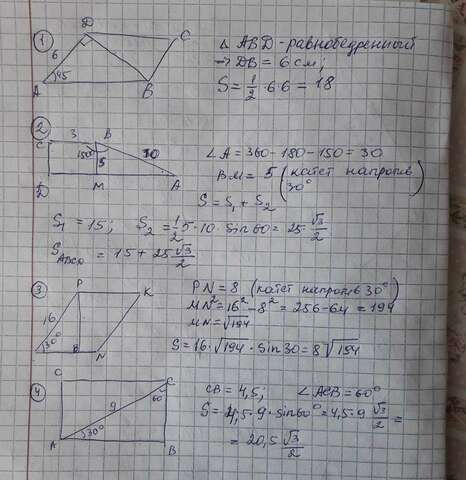 ①
A
45
6
D
B
C
∠ ABD - равнобедренный
→ DB = 6 см,
S = 1/2 · 6·6 = 18
②
C
3
150°
B
M
5
10
A
D
∠A = 360 - 180 - 150 = 30
BM = 5 (катет напротив
30°)
S = S₁ + S₂
S₁ = 15; S₂ = 1/2 · 5 · 10 sin 60 = 25 · √3/2
S = 15 + 25 √3/2
③
16
30°
P
N
K
PN = 8 (катет напротив 30°)
MN² = 16² - 8² = 256 - 64 = 194
MN = √194
S = 16 √194 · sin 30 = 8 √194
④
30°
9
60
C
B
CB = 4,5; ∠ACB = 60°
S = 4,5 · 9 · sin 60° = 4,5 · 9 √3/2 =
= 20,5 √3/2